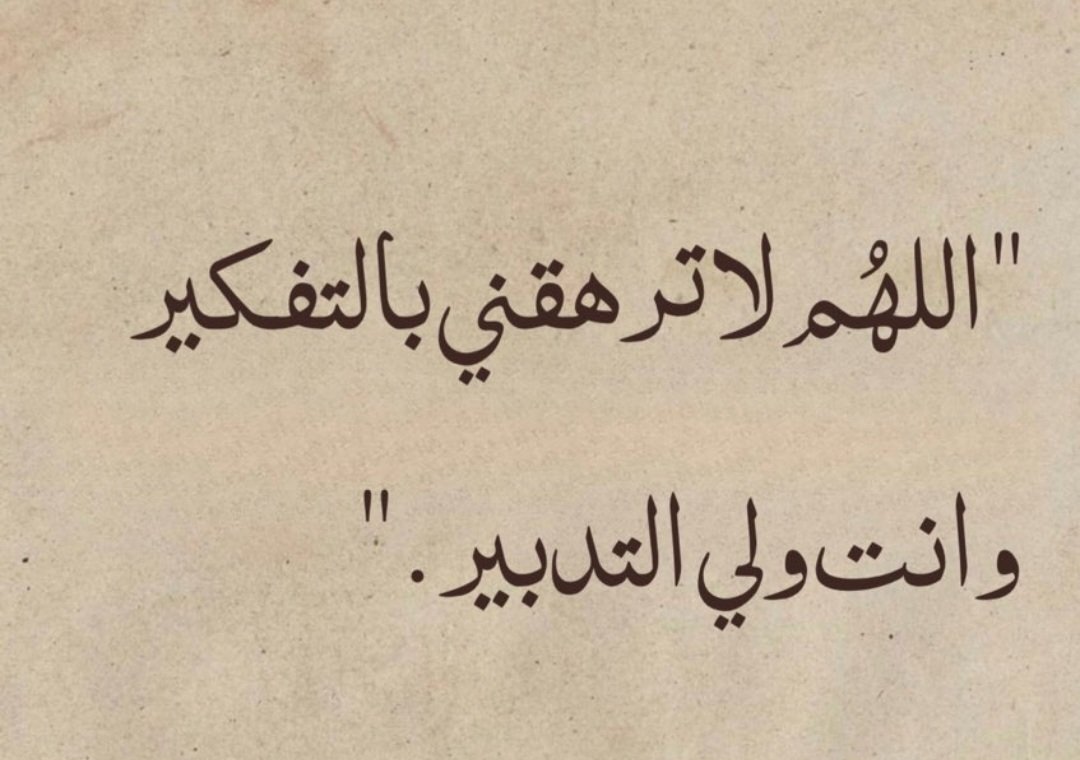 "اللهُم لاترهقني بالتفكير
وانت ولي التدبير ."